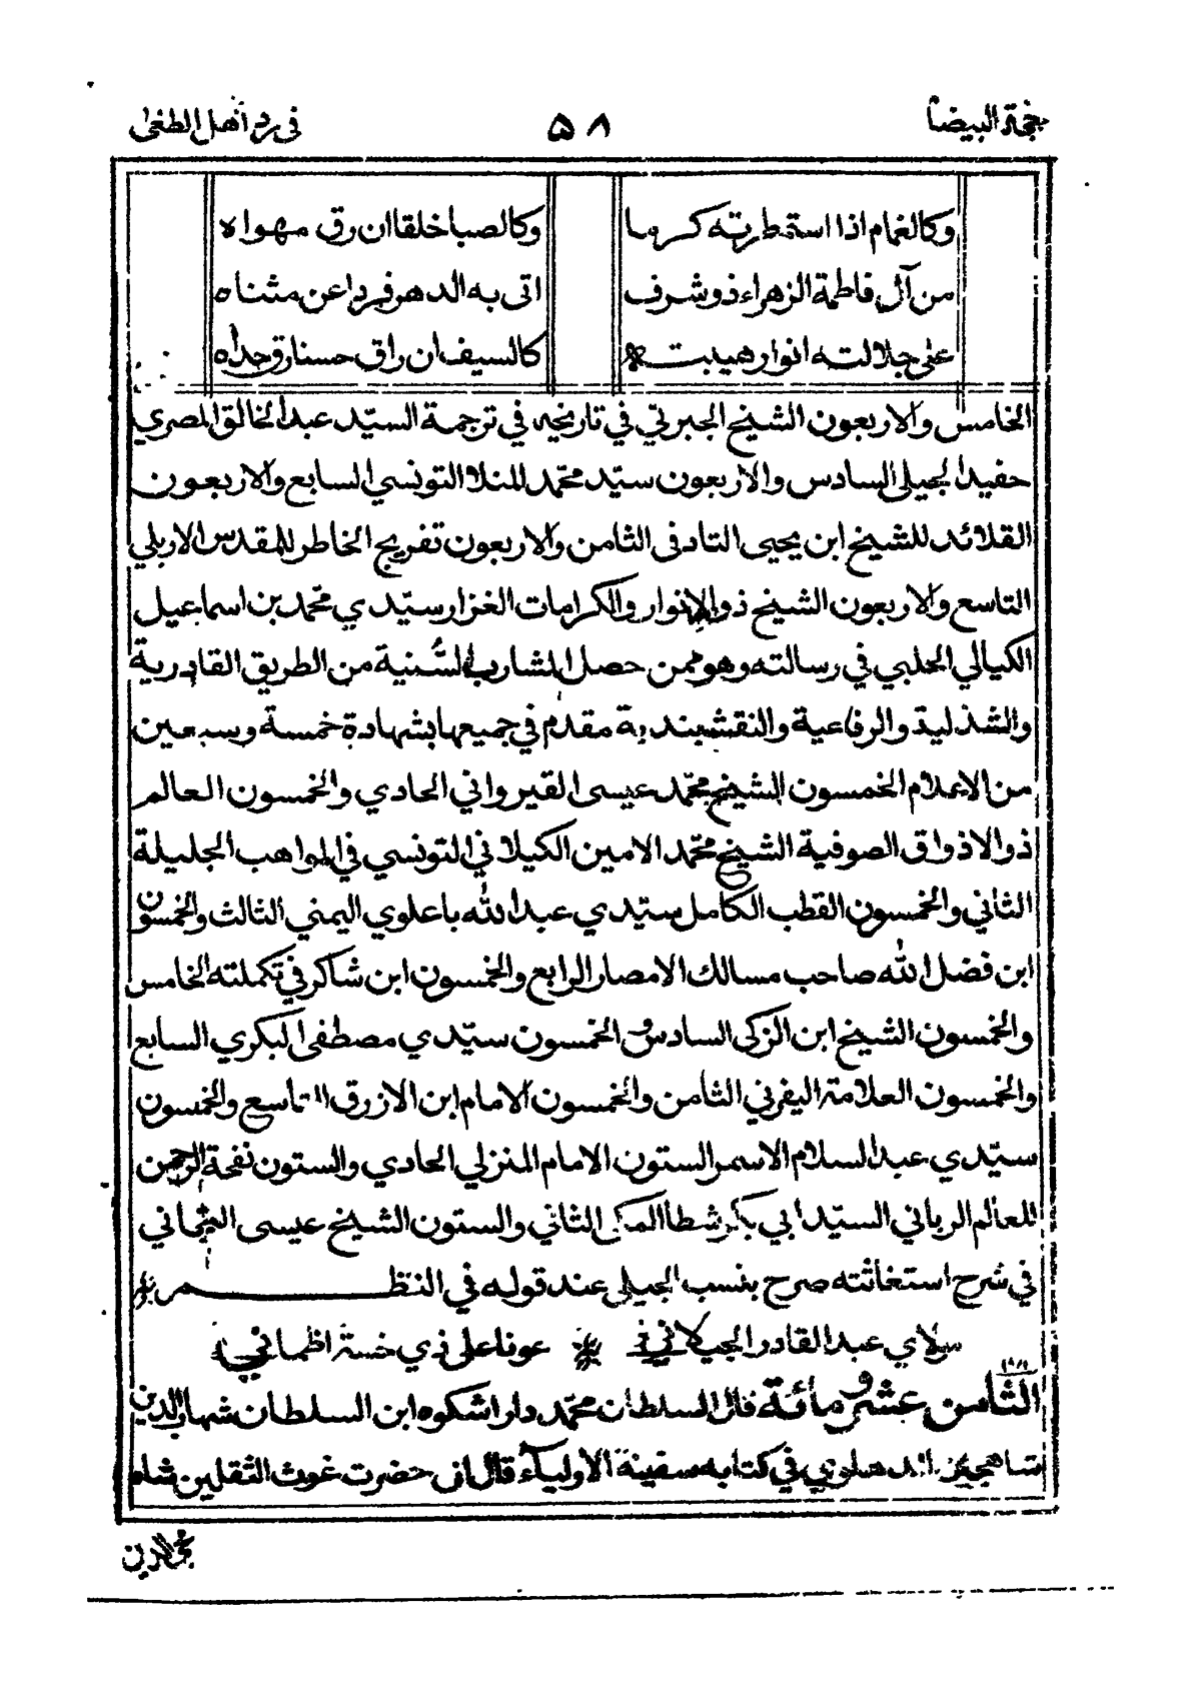 حجة البيضا ٥٨ فى رد أهل الطغى
وكالغمام اذا استمطرته كرما وكالصبا خلقا ان رق مهواه
من آل فاطمة الزهراء ذو شرف اتى به الدهر فردا عن مثناه
على جلالته انوار هيبته كالسيف ان راق حسنا رق حداه
الخامس والاربعون الشيخ الجبرتي في تاريخه في ترجمة السيّد عبد الخالق المصري
حفيد الجيلى السادس والاربعون سيّد محمّد المنلا التونسي السابع والاربعون
القلائد للشيخ ابن يحيى التادفى الثامن والاربعون تفريج الخاطر للمقدس الاربلي
التاسع والاربعون الشيخ ذو الانوار والكرامات الغزار سيّدي محمّد بن اسماعيل
الكيالي الحلبي في رسالته وهو ممن حصل المشارب السُّنية من الطريق القادرية
والشذلية والرفاعية والنقشبندية مقدم في جميعها بشهادة خمسة وسبعين
من الاعلام الخمسون الشيخ محمّد عيسى القيرواني الحادي والخمسون العالم
ذو الاذواق الصوفية الشيخ محمّد الامين الكيلاني التونسي في المواهب الجليلة
الثاني والخمسون القطب الكامل سيّدي عبد الله باعلوي اليمني الثالث والخمسون
ابن فضل الله صاحب مسالك الامصار الرابع والخمسون ابن شاكر في تكملته الخامس
والخمسون الشيخ ابن الزكى السادس والخمسون سيّدي مصطفى البكري السابع
والخمسون العلامة اليفرني الثامن والخمسون الامام ابن الازرق التاسع والخمسون
سيّدي عبد السلام الاسمر الستون الامام المنزلي الحادي والستون نفحة الرحمن
للعالم الرباني السيّد ابي بكر شطا المكى الثاني والستون الشيخ عيسى التجاني
في شرح استغاثته صرح بنسب الجيلى عند قوله في النظم
مولاي عبد القادر الجيلاني في عونا على ذي خسة اظماني
الثامن عشر ومائة قال السلطان محمّد دارا شكوه ابن السلطان شهاب الدين
شاهجهان الدهلوي في كتابه سفينة الاولياء قال انى حضرت غوث الثقلين شاه
محى الدين